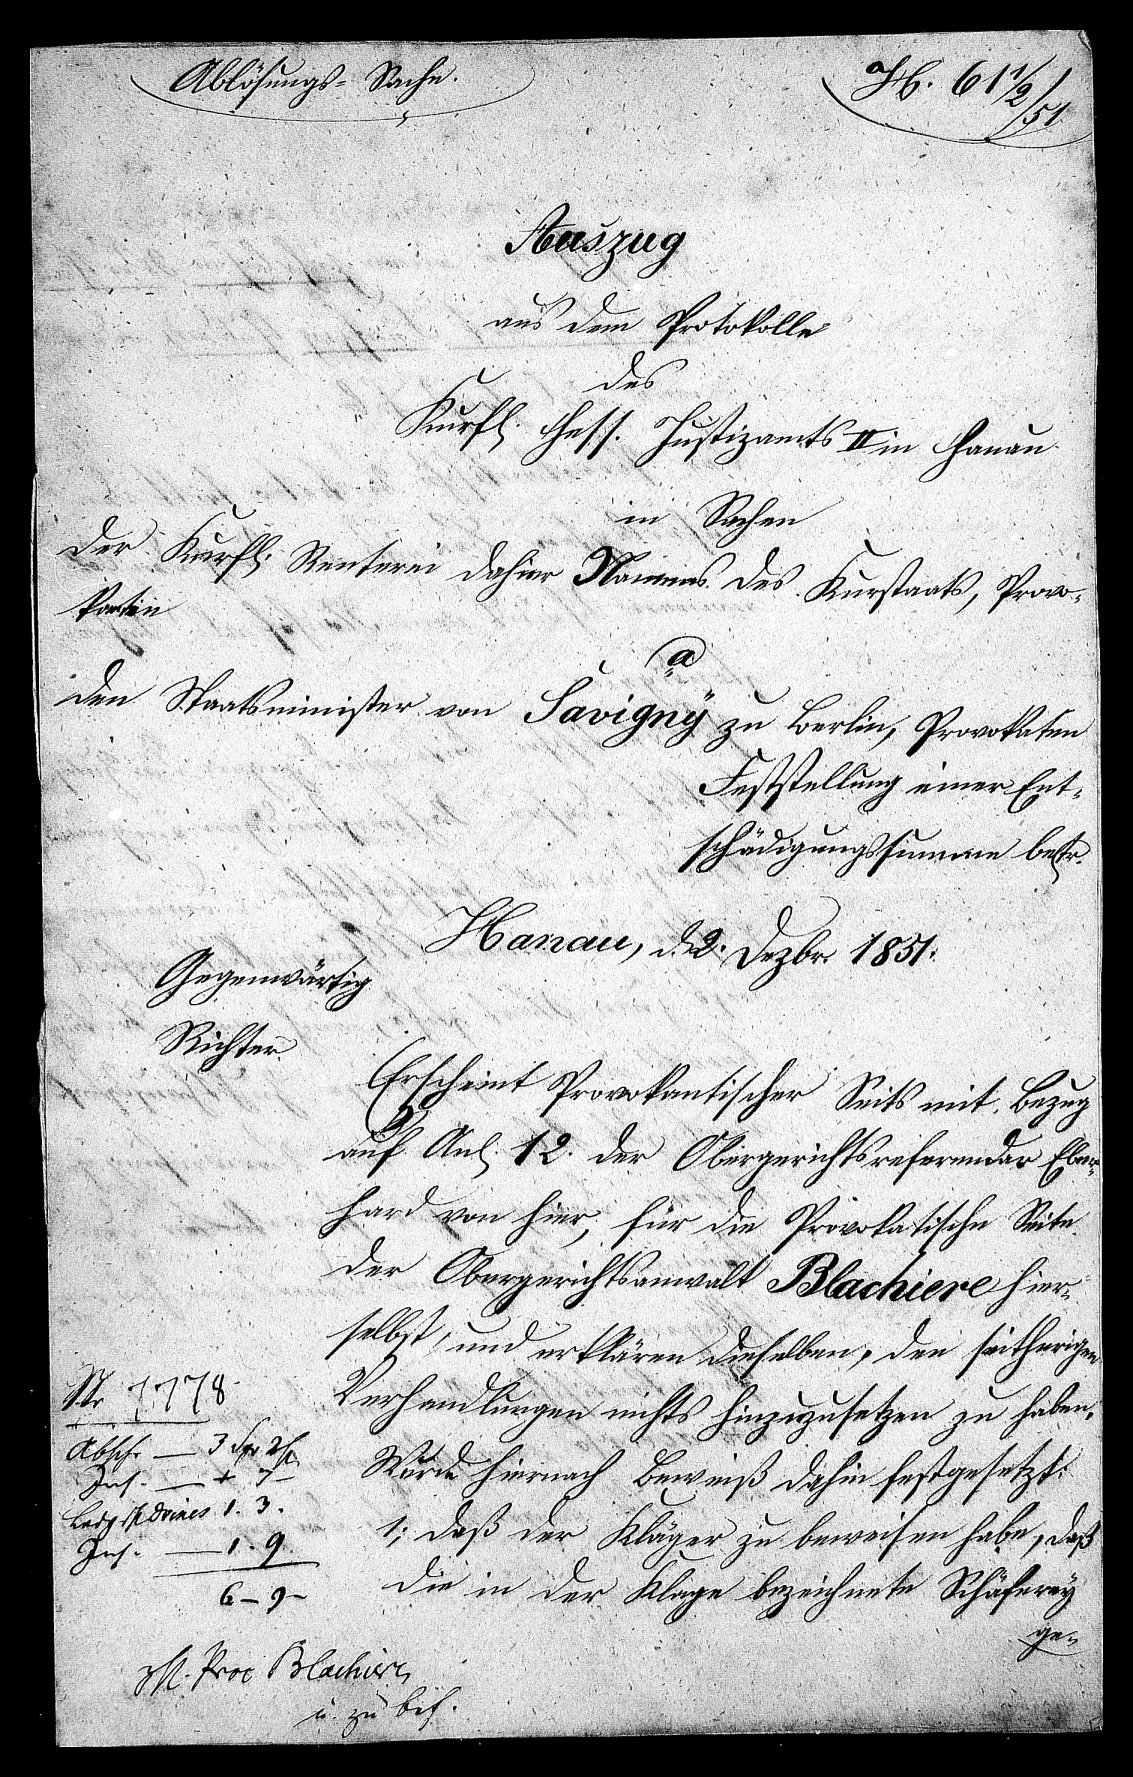 Ablösungs-Sache.
H. 61 1/2/51
Auszug
aus dem Protokolle
des
Kurfl. Hess. Justizamts II in Hanau
in Sachen
der Kurfl. Renterei dahier Namens des Kurstaats, Provo-
kantin
a
den Staatsminister von Savigny zu Berlin, Provokaten
Feststellung einer Ent-
schädigungssumme betr.
Hanau, d. 2. Dezbr. 1851.
Gegenwärtig
Richter
Erscheint Provokantischer Seits mit Bezug
auf Anl. 12. der Obergerichtsreferendar Eber-
hard von hier, für die Provokatische Seite
der Obergerichtsanwalt Blachiere hier-
selbst, und erklären dieselben, den seitherigen
Verhandlungen nichts hinzuzusetzen zu haben.
Würde hiernach Beweiß dahin festgesetzt:
1; daß der Kläger zu beweisen habe, daß
die in der Klage bezeichnete Schäferey
ge-
Nr 7778
Absch. — 3 Sgr 2 h
Ins. — + 7 —
1. 3.
Ins. — 1. 9.
6 — 9 —
Proc Blachiere
u. zu bes.